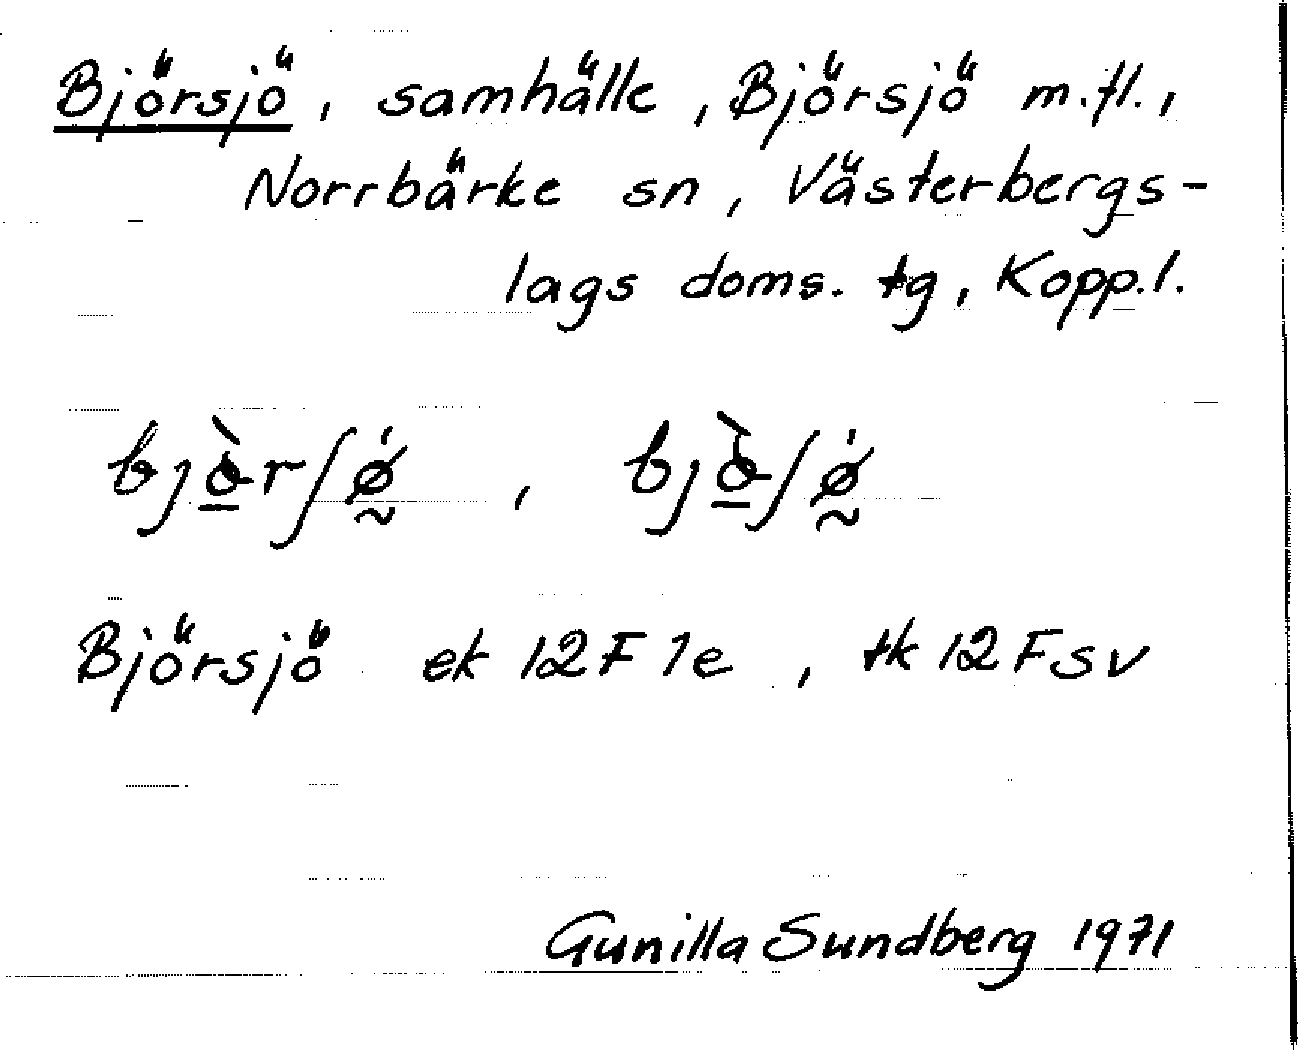 Björsjö, samhälle, Björsjö m.fl.,
Norrbärke sn, Västerbergs-
lags doms. tg, Kopp.l.
Björsjö ek 12F 1e, tk 12F sv
Gunilla Sundberg 1971